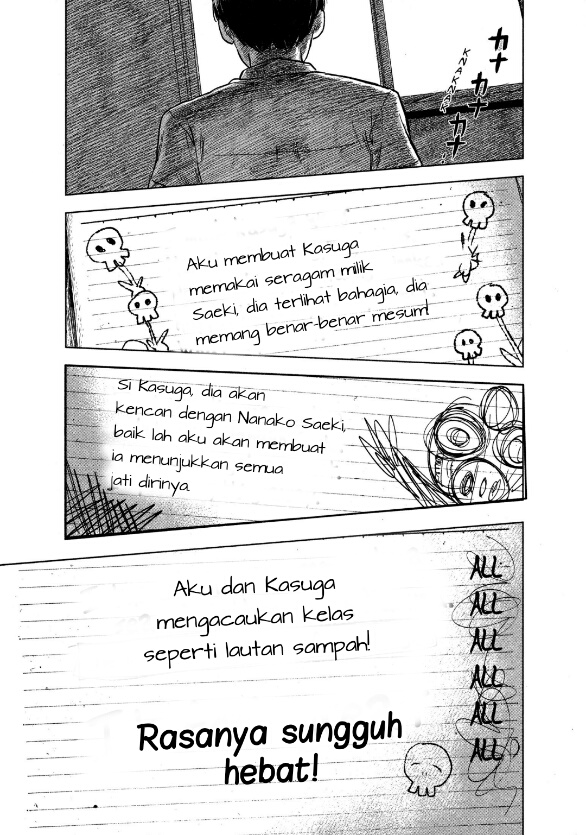 カナカナカナ
KNAKNAK...!
Aku membuat Kasuga
memakai seragam milik
Saeki, dia terlihat bahagia, dia
memang benar-benar mesum!
Si Kasuga, dia akan
kencan dengan Nanako Saeki,
baik lah aku akan membuat
ia menunjukkan semua
jati dirinya
Aku dan Kasuga
mengacaukan kelas
seperti lautan sampah!
ALL
ALL
ALL
ALL
ALL
ALL
Rasanya sungguh
hebat!